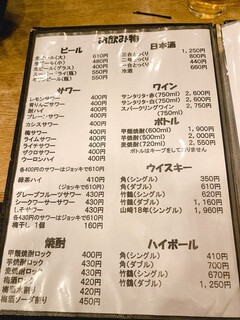 お飲み物
ビール
生ビール(大) 610円
ビール(グラス) 400円
550円
550円
サワー
レモンサワー 400円
青りんごサワー 400円
酎ハイ 400円
プレーンサワー 400円
カシスサワー 400円
梅サワー 400円
ライムサワー 400円
ライチサワー 400円
ザクロサワー 400円
ウーロンハイ 400円
各400円のサワーはジョッキで610円
緑茶ハイ 410円
(ジョッキで610円)
グレープフルーツサワー 430円
シークワーサーサワー 430円
しそサワー 430円
各430円のサワーはジョッキで630円
梅干し 1個 160円
焼酎
甲類焼酎ロック 400円
芋焼酎ロック 430円
麦焼酎ロック 430円
梅酒ロック 430円
420円
梅酒ソーダ割り 450円
日本酒
1,250円
800円
二合とっくり 440円
冷酒 660円
ワイン
サンタリタ・赤(750ml) 2,750円
サンタリタ・白(750ml) 2,750円
スパークリングワイン 2,750円
(750ml)
ボトル
甲類焼酎(600ml) 1,900円
芋焼酎(500ml) 2,000円
麦焼酎(720ml) 2,000円
ボトルはキープをしておりません
ウイスキー
角(シングル) 350円
角(ダブル) 610円
竹鶴(シングル) 620円
竹鶴(ダブル) 1,210円
山崎18年(シングル) 1,960円
ハイボール
角(シングル) 410円
角(ダブル) 700円
竹鶴(シングル) 670円
竹鶴(ダブル) 1,250円